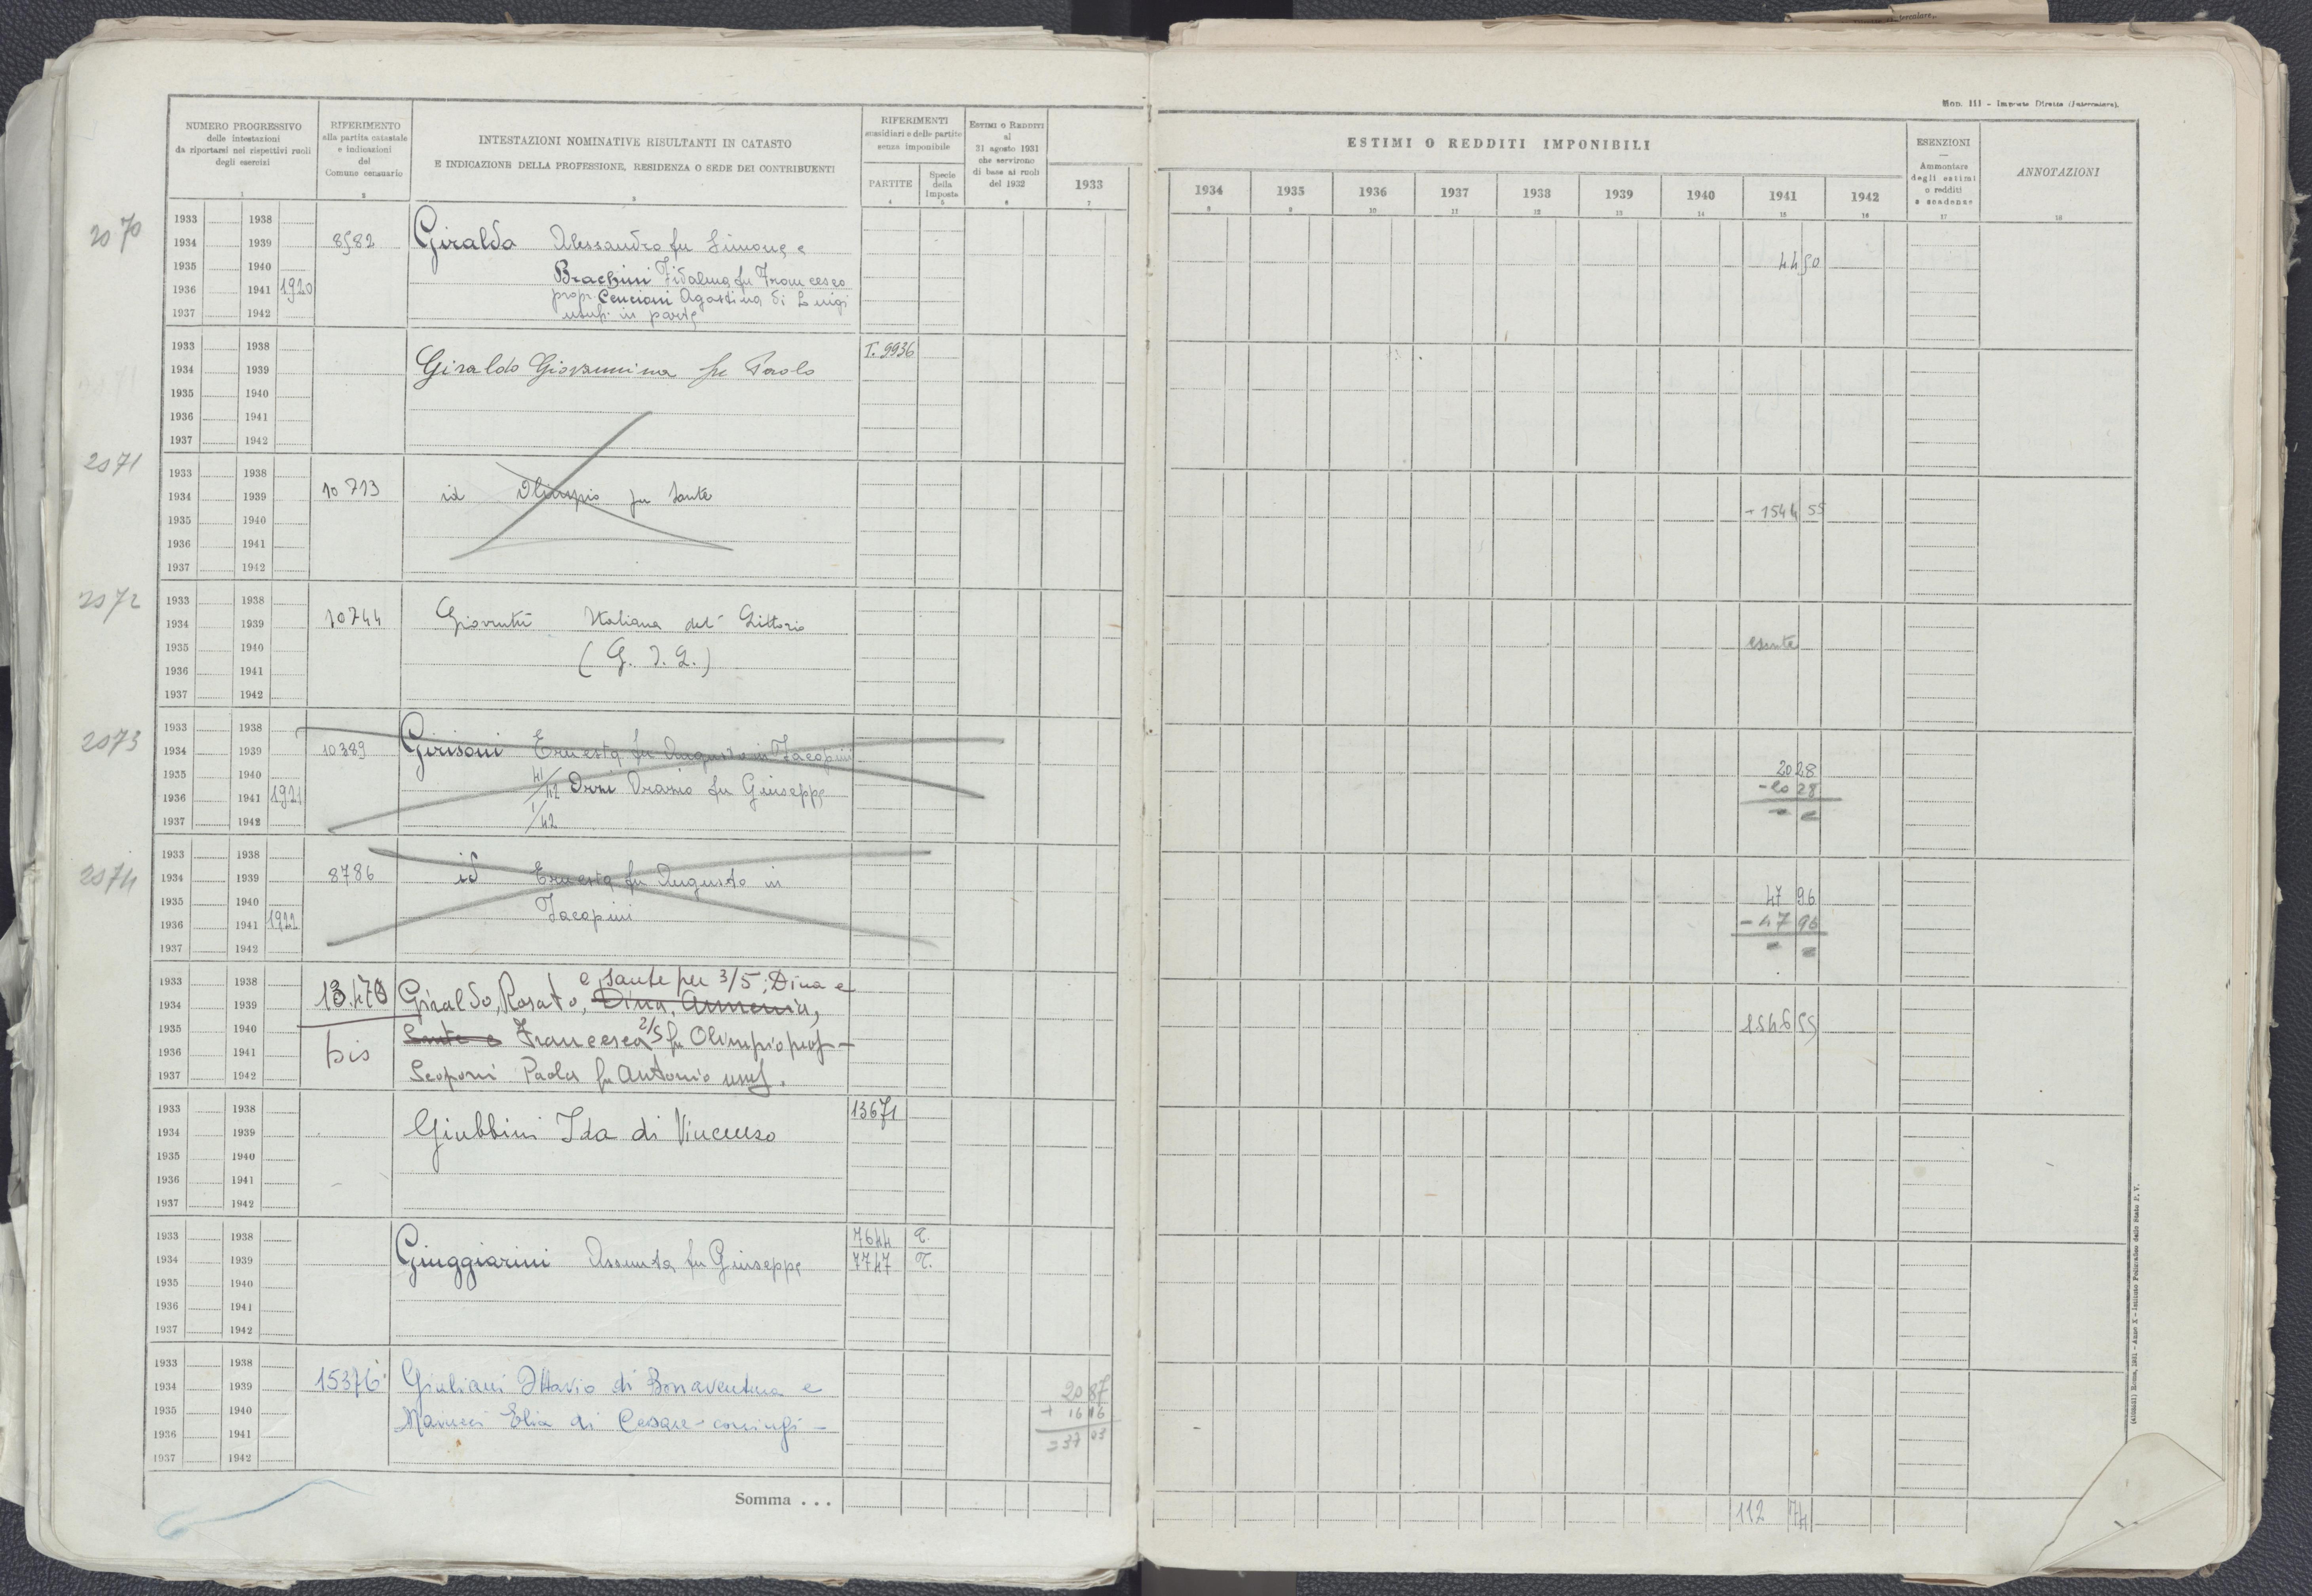 Mod. III - Imposte Dirette (Intercalare).
NUMERO PROGRESSIVO
delle intestazioni
da riportarsi nei rispettivi ruoli
degli esercizi
1
RIFERIMENTO
alla partita catastale
e indicazioni
del
Comune censuario
2
INTESTAZIONI NOMINATIVE RISULTANTI IN CATASTO
E INDICAZIONE DELLA PROFESSIONE, RESIDENZA O SEDE DEI CONTRIBUENTI
3
RIFERIMENTI
sussidiari e delle partite
senza imponibile
PARTITE
4
Specie
della
Imposta
5
ESTIMI O REDDITI
al
31 agosto 1931
che servirono
di base ai ruoli
del 1932
6
1933
7
ESTIMI O REDDITI IMPONIBILI
1934 1935 1936 1937 1938 1939 1940 1941 1942
8 9 10 11 12 13 14 15 16
ESENZIONI
—
Ammontare
degli estimi
o redditi
e scadenze
17
ANNOTAZIONI
18
2070
1933 1938
1934 1939 8582 Giraldo Alessandro fu Simone e
1935 1940 Brachini Fidalma fu Francesco 44 50
1936 1941 1920 propr. Cencioni Agostina di Luigi
1937 1942 usuf. in parte
1933 1938 T. 9936
1934 1939 Giraldo Giovannina fu Paolo
1935 1940
1936 1941
1937 1942
2071
1933 1938
1934 1939 10713 id Olimpio fu Sante
1935 1940 - 1544 55
1936 1941
1937 1942
2072
1933 1938
1934 1939 10744 Gioventù Italiana del Littorio
1935 1940 (G. I. L.) esente
1936 1941
1937 1942
2073
1933 1938
1934 1939 10389 Girisoni Ernesta fu Augusto in Jacopini
1935 1940 41/42 Orzi Orazio fu Giuseppe 20 28
1936 1941 1921 - 20 28
1937 1942 1/42 = =
2074
1933 1938
1934 1939 8786 id Ernesta fu Augusto in
1935 1940 Jacopini 47 96
1936 1941 1922 - 47 96
1937 1942 = =
1933 1938 e Sante per 3/5; Dina e
1934 1939 13.470 Giraldo, Rosato, Dina, Armenia,
1935 1940 bis Sante e Francesca 2/5 fu Olimpio prop - 1546 55
1936 1941
1937 1942 Scoponi Paola fu Antonio usuf.
1933 1938 13671
1934 1939 Giubbini Ida di Vincenzo
1935 1940
1936 1941
1937 1942
1933 1938 7644 T.
1934 1939 Giuggiarini Assunta fu Giuseppe 7747 T.
1935 1940
1936 1941
1937 1942
1933 1938
1934 1939 15376 Giuliani Ottavio di Bonaventura e 20 87
1935 1940 Elia di Cesare - coniugi - + 16 16
1936 1941 = 37 03
1937 1942
Somma . . . 112 74